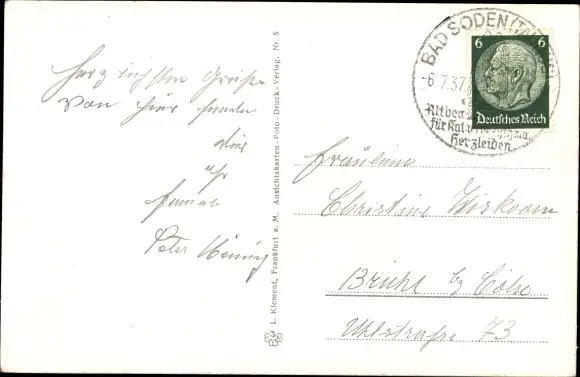 Herzlichsten Grüße
von hier senden
dir
Peter
L. Klement, Frankfurt a. M. Ansichtskarten-Foto-Druck-Verlag. Nr. 5
BAD SODEN (TAUNUS)
-6.7.37
für Kat
Herzleiden
6 6
Deutsches Reich
Fräulein
Christine
Brühl bz Cöln
Uhlstraße 73